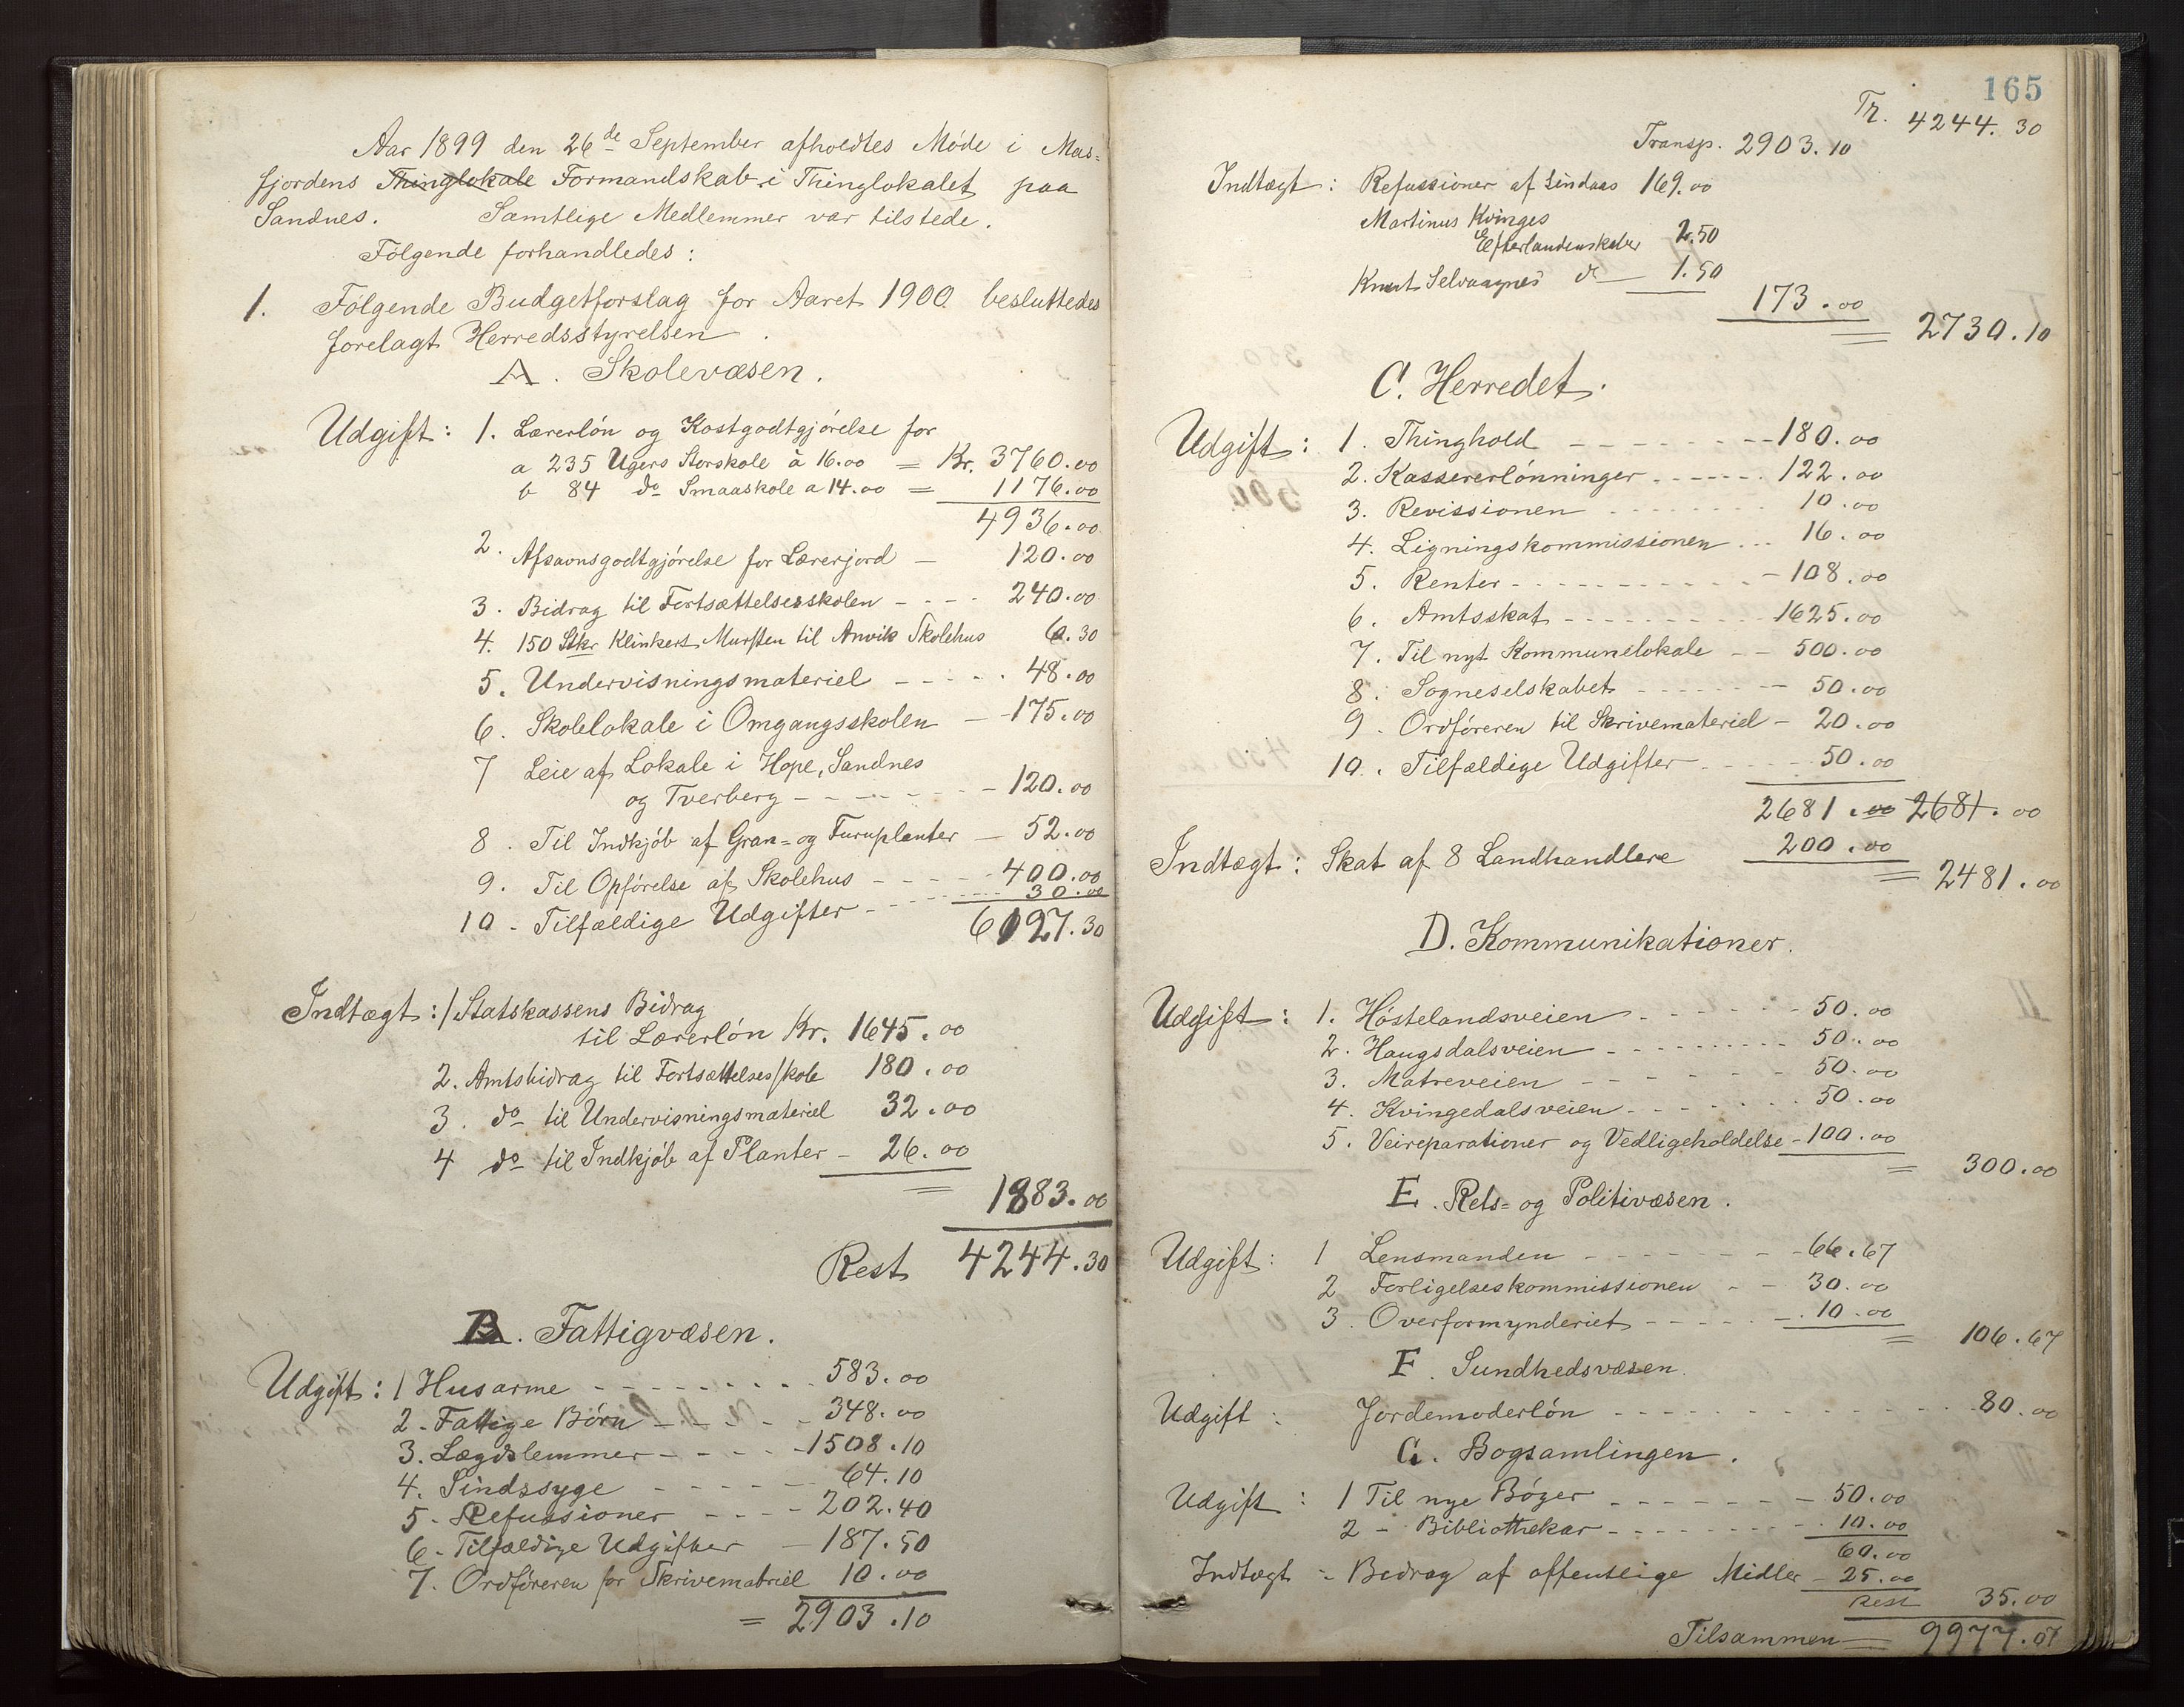 Aar 1899 den 26de September afholdtes Møde i Mas=
fjordens Thinglokale Formandskab i Thinglokalet paa
Sandnes. Samtlige Medlemmer var tilstede.
Følgende forhandledes:
1. Følgende Budgetforslag for Aaret 1900 besluttedes
forelagt Herredsstyrelsen.
A. Skolevæsen.
Udgift: 1. Lærerløn og Kostgodtgjørelse for
a 235 Ugers Storskole à 16.00 = Kr. 3760.00
b 84 do Smaaskole a 14.00 = 1176.00
4936.00
2. Afsavnsgodtgjørelse for Lærerjord — 120.00
3. Bidrag til Fortsættelsesskolen - - - - 240.00
4. 150 Stkr Klinkert Mursten til Anvik Skolehus 6.30
5. Undervisningsmateriel - - - - . 48.00
6. Skolelokale i Omgangsskolen - - 175.00
7 Leie af Lokale i Hope, Sandnes
og Tverberg - - - - - - - 120.00
8. Til Indkjøb af Gran= og Furuplanter — 52.00
9. Til Opførelse af Skolehus - - - - - 400.00
10 - Tilfældige Udgifter - - - - - 30.00
6127.30
Indtægt: 1 Statskassens Bidrag
til Lærerløn Kr. 1645.00
2. Amtsbidrag til Fortsættelsesskole 180.00
3. do til Undervisningsmateriel 32.00
4 do til Indkjøb af Planter - 26.00
= 1883.00
Rest 4244.30
B. Fattigvæsen.
Udgift: 1 Husarme - - - - - - - - 583.00
2 - Fattige Børn - - - - - 348.00
3. Lægdslemmer - - - - - 1508.10
4. Sindssyge - - - - - - 64.10
5 - Refussioner - - - - 202.40
6 - Tilfældige Udgifter — 187.50
7. Ordføreren for Skrivematriel 10.00
= 2903.10
165
Tr. 4244.30
Transp. 2903.10
Indtægt: Refussioner af Lindaas 169.00
Martinus Kvinges
Efterlandenskaber 2.50
Knut Selvaagnes do — 1.50
173.00
= 2730.10
C. Herredet.
Udgift: 1. Thinghold - - - - - - - 180.00
2. Kassererlønninger - - - - - - 122.00
3. Revissionen - - - - - - - - 10.00
4. Ligningskommissionen ... 16.00
5. Renter - - - - - - - - - - 108.00
6. Amtsskat - - - - - - - - - 1625.00
7. Til nyt Kommunelokale - - 500.00
8. Sogneselskabet - - - - - - - 50.00
9. Ordføreren til Skrivemateriel - 20.00
10. Tilfældige Udgifter - - - - - 50.00
2681.00 2681.00
Indtægt: Skat af 8 Landhandlere 200.00
= 2481.00
D. Kommunikationer.
Udgift: 1. Høstelandsveien - - - - - - 50.00
2. Haugsdalsveien - - - - - - - - - 50.00
3. Matreveien - - - - - - 50.00
4. Kvingedalsveien - - - - - - 50.00
5. Veireparationer og Vedligeholdelse - 100.00
= 300.00
E. Rets= og Politivæsen.
Udgift: 1 Lensmanden - - - - - - - 66.67
2 Forligelseskommissionen - - 30.00
3. Overformynderiet - - - - - - 10.00
= 106.67
F. Sundhedsvæsen.
Udgift: Jordemoderløn - - - - - - - - - - - - 80.00
G. Bogsamlingen.
Udgift: 1 Til nye Bøger - - - - - - - 50.00
2 - Bibliothekar - - - - - - - - 10.00
60.00
Indtægt - Bedrag af offentlige Midler - 25.00
Rest 35.00
Tilsammen = 9977.07